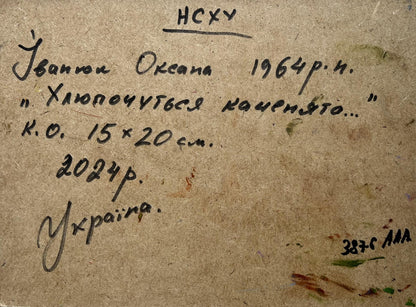 НСХУ
Іванюк Оксана 1964р.н.
„Хлюпочуться каченята..."
К.О. 15×20см.
2024р.
Україна.
3876 ААА